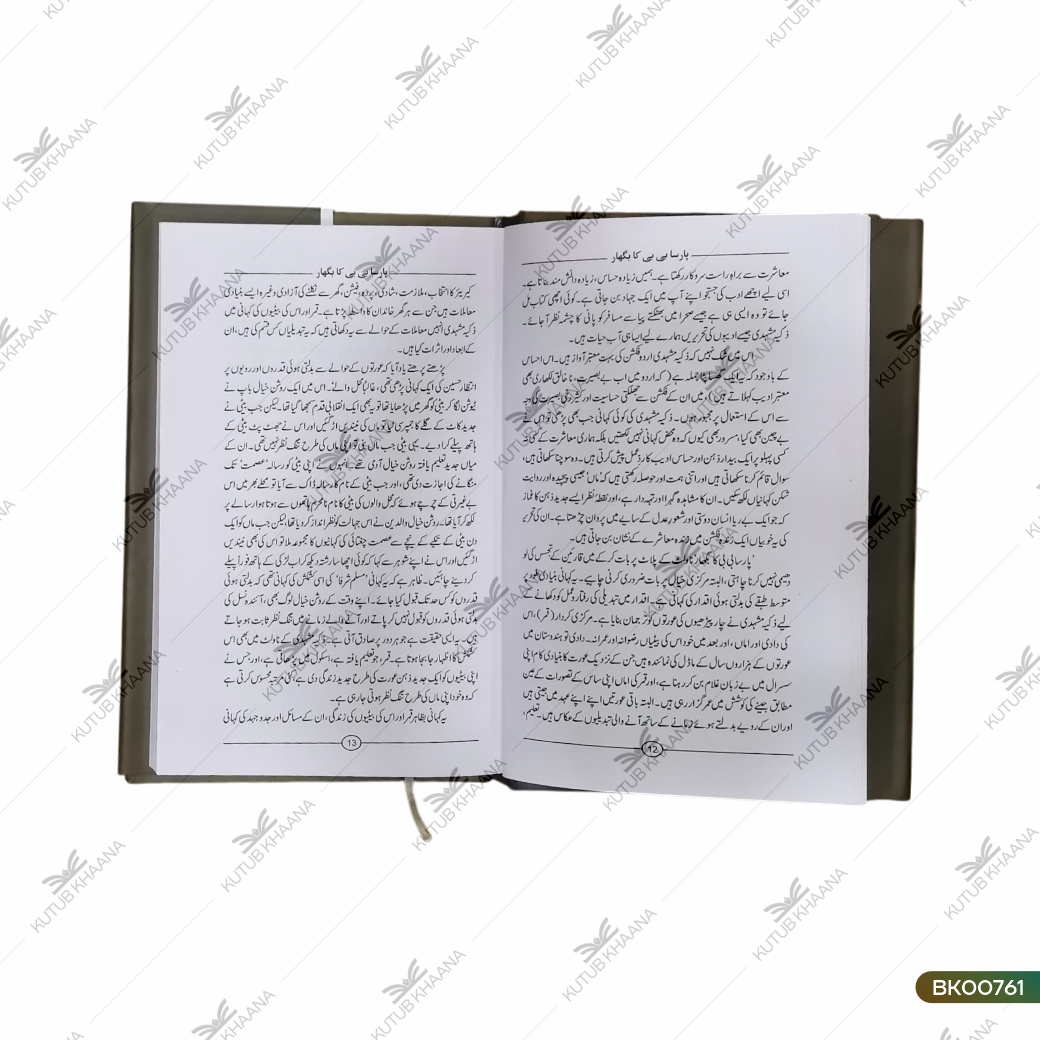 پارسا بی بی کا بگھار
معاشرت سے براہِ راست سروکار رکھتا ہے۔ ہمیں زیادہ حساس، زیادہ دانش مند بناتا ہے۔
اسی لیے اچھے ادب کی جستجو اپنے آپ میں ایک جہاد بن جاتی ہے۔ کوئی اچھی کتاب مل
جائے تو وہ ایسی ہی ہے جیسے صحرا میں بھٹکتے پیاسے مسافر کو پانی کا چشمہ نظر آ جائے۔
ذکیہ مشہدی جیسے ادیبوں کی تحریریں ہمارے لیے ایسا ہی آبِ حیات ہیں۔
اس میں شک نہیں کہ ذکیہ مشہدی اردو فکشن کی بہت معتبر آواز ہیں۔ اس احساس
کے باوجود کہ یہ ایک گھسا پٹا جملہ ہے (کہ اردو میں اب بے بصیرت، ناخالق لکھاری بھی
معتبر ادیب کہلاتے ہیں)، میں ان کے فکشن سے جھلکتی حساسیت اور گہری بصیرت کی وجہ
سے اس کے استعمال پر مجبور ہوں۔ ذکیہ مشہدی کی کوئی کہانی جب بھی پڑھی تو اس نے
بے چین بھی کیا، مسرور بھی کیوں کہ وہ محض کہانی نہیں لکھتیں بلکہ ہماری معاشرت کے کسی نہ
کسی پہلو پر ایک بیدار ذہن اور حساس ادیب کا ردِ عمل پیش کرتی ہیں۔ وہ سوچنا سکھاتی ہیں،
سوال قائم کرنا سکھاتی ہیں اور اتنی ہمت اور حوصلہ رکھتی ہیں کہ 'ماں' جیسی پیچیدہ اور روایت
شکن کہانیاں لکھ سکیں۔ ان کا مشاہدہ گہرا اور تہہ دار ہے، اور نقطۂ نظر ایسے جدید ذہن کا غماز
کہ جو ایک بے ریا انسان دوستی اور شعورِ عدل کے سایے میں پروان چڑھتا ہے۔ ان کی تحریر
کی یہ خوبیاں ایک زندہ فکشن میں زندہ معاشرے کے نشان بن جاتی ہیں۔
'پارسا بی بی کا بگھار' ناولٹ کے پلاٹ پر بات کر کے میں قارئین کے تجسس کی لو
دھیمی نہیں کرنا چاہتی، البتہ مرکزی خیال پر بات ضروری کرنی چاہیے۔ یہ کہانی بنیادی طور پر
متوسط طبقے کی بدلتی ہوئی اقدار کی کہانی ہے۔ اقدار میں تبدیلی کی رفتار و عمل کو دکھانے کے
لیے ذکیہ مشہدی نے چار پیڑھیوں کی عورتوں کو ترجمان بنایا ہے۔ مرکزی کردار (قمر)، اس
کی دادی اور اماں، اور بعد میں خود اس کی بیٹیاں رضوانہ اور عمرانہ۔ دادی تو ہندستان میں
عورتوں کے ہزاروں سال کے ماڈل کی نمائندہ ہیں جن کے نزدیک عورت کا بنیادی کام اپنی
سسرال میں بے زبان غلام بن کر رہنا ہے، اور قمر کی اماں اپنی ساس کے تصورات کے عین
مطابق جینے کی کوشش میں عمر گزار رہی ہیں۔ البتہ باقی عورتیں اپنے اپنے عہد میں جیتی ہیں
اور ان کے رویے بدلتے ہوئے زمانے کے ساتھ آنے والی تبدیلیوں کے عکاس ہیں۔ تعلیم،
12
پارسا بی بی کا بگھار
کیریئر کا انتخاب، ملازمت، شادی، پردہ، فیشن، گھر سے نکلنے کی آزادی وغیرہ ایسے بنیادی
معاملات ہیں جن سے ہر گھر خاندان کا واسطہ پڑتا ہے۔ قمر اور اس کی بیٹیوں کی کہانی میں
ذکیہ مشہدی انہیں معاملات کے حوالے سے یہ دکھاتی ہیں کہ یہ تبدیلیاں کس قسم کی ہیں، ان
کے ابعاد اور اثرات کیا ہیں۔
پڑھتے پڑھتے یاد آیا کہ عورتوں کے حوالے سے بدلتی ہوئی قدروں اور رویوں پر
انتظار حسین کی ایک کہانی پڑھی تھی، غالباً 'محل والے'۔ اس میں ایک روشن خیال باپ نے
ٹیوشن لگا کر بیٹی کو گھر میں پڑھایا تھا تو یہ بھی ایک انقلابی قدم سمجھا گیا تھا۔ لیکن جب بیٹی نے
جدید کاٹ کے گلے کا جمپر سی لیا تو ماں کی نیندیں اڑ گئیں اور اس نے جھٹ پٹ بیٹی کے
ہاتھ پیلے کرا دیے۔ یہی بیٹی جب ماں بنی تو اپنی ماں کی طرح تنگ نظر نہیں تھی۔ ان کے
میاں جدید تعلیم یافتہ روشن خیال آدمی تھے۔ انہوں نے اپنی بیٹی کو رسالہ 'عصمت' تک
منگانے کی اجازت دی تھی، اور جب بیٹی کے نام کا رسالہ ڈاک سے آیا تو محلے بھر میں اس
بے غیرتی کے چرچے ہوئے کہ محل والوں کی بیٹی کا نام نامحرم ہاتھوں سے ہوتا ہوا رسالے پر
لکھ کر آیا تھا۔ روشن خیال والدین نے اس جہالت کو نظر انداز کر دیا تھا لیکن جب ماں کو ایک
دن بیٹی کے تکیے کے نیچے سے عصمت چغتائی کی کہانیوں کا مجموعہ ملا تو اس کی بھی نیندیں
اڑ گئیں اور اس نے اپنے شوہر سے کہا کہ کوئی اچھا سا رشتہ دیکھ کر اب لڑکی کے ہاتھ فوراً پیلے
کر دینے چاہئیں۔ ظاہر ہے کہ یہ کہانی 'مسلم شرفا' کی اسی کشمکش کی کہانی تھی کہ بدلتی ہوئی
قدروں کو کس حد تک قبول کیا جائے۔ اپنے وقت کے روشن خیال لوگ بھی، آئندہ نسل کی
بدلتی ہوئی قدروں کو قبول نہیں کر پاتے اور آنے والے زمانے میں تنگ نظر ثابت ہو جاتے
ہیں۔ یہ ایسی حقیقت ہے جو ہر دور پر صادق آتی ہے۔ ذکیہ مشہدی کے ناولٹ میں بھی اس
کشمکش کا اظہار جابجا ہوتا ہے۔ قمر، جو تعلیم یافتہ ہے، اسکول میں پڑھاتی ہے، اور جس نے
اپنی بیٹیوں کو ایک جدید ذہن عورت کی طرح جدید زندگی دی ہے، کئی مرتبہ محسوس کرتی ہے
کہ وہ خود اپنی ماں کی طرح تنگ نظر ہوتی جا رہی ہے۔
یہ کہانی بظاہر قمر اور اس کی بیٹیوں کی زندگی، ان کے مسائل اور جدوجہد کی کہانی
13
KUTUB KHAANA
BK00761